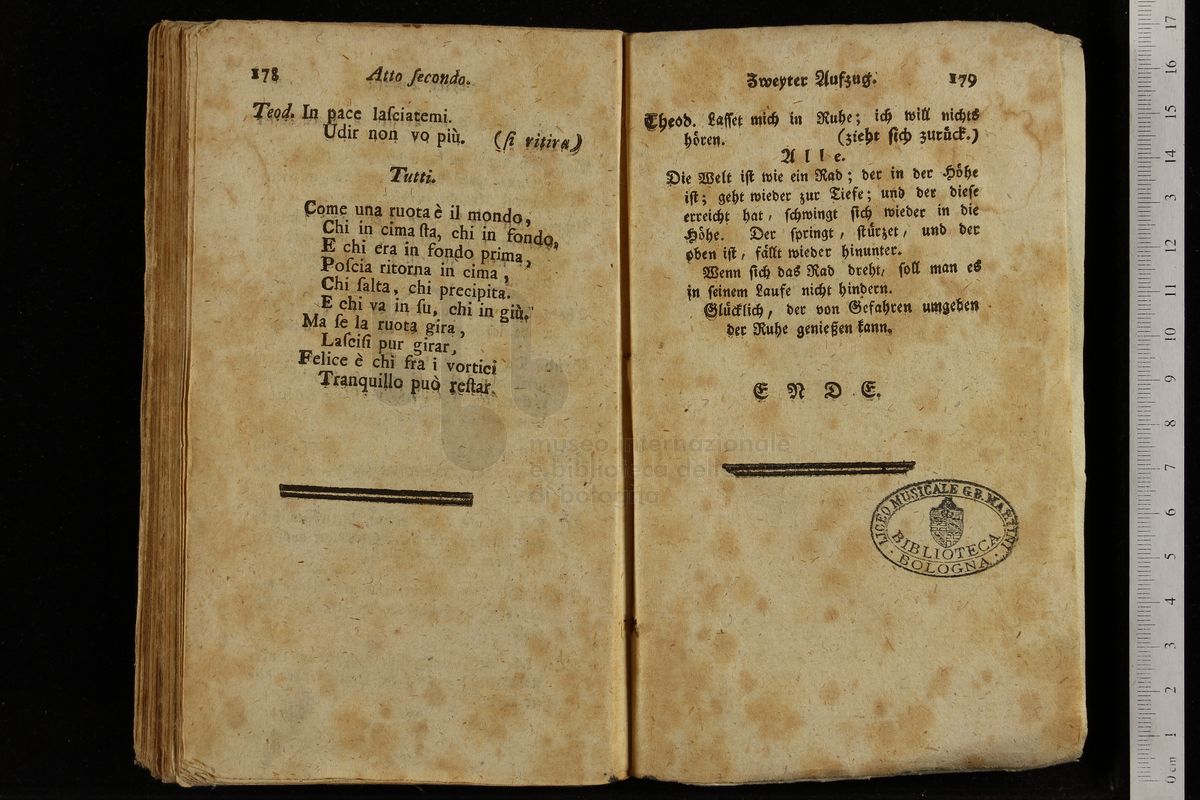 178 Atto ſecondo.
Teod. In pace laſciatemi.
Udir non vo più. (ſi ritira)
Tutti.
Come una ruota è il mondo,
Chi in cima ſta, chi in fondo,
E chi era in fondo prima,
Poſcia ritorna in cima,
Chi ſalta, chi precipita.
E chi va in ſu, chi in giù.
Ma ſe la ruota gira,
Laſciſi pur girar,
Felice è chi fra i vortici
Tranquillo può reſtar.
Zweyter Aufzug. 179
Theod. Laſſet mich in Ruhe; ich will nichts
hören. (zieht ſich zurück.)
Alle.
Die Welt iſt wie ein Rad; der in der Höhe
iſt; geht wieder zur Tiefe; und der dieſe
erreicht hat, ſchwingt ſich wieder in die
Höhe. Der ſpringt, ſtürzet, und der
oben iſt, fällt wieder hinunter.
Wenn ſich das Rad dreht, ſoll man es
in ſeinem Laufe nicht hindern.
Glücklich, der von Gefahren umgeben
der Ruhe genießen kann.
ENDE.
LICEO MUSICALE G.B. MARTINI
BIBLIOTECA
BOLOGNA
museo internazionale
e biblioteca della
di bologna
0 cm 1 2 3 4 5 6 7 8 9 10 11 12 13 14 15 16 17